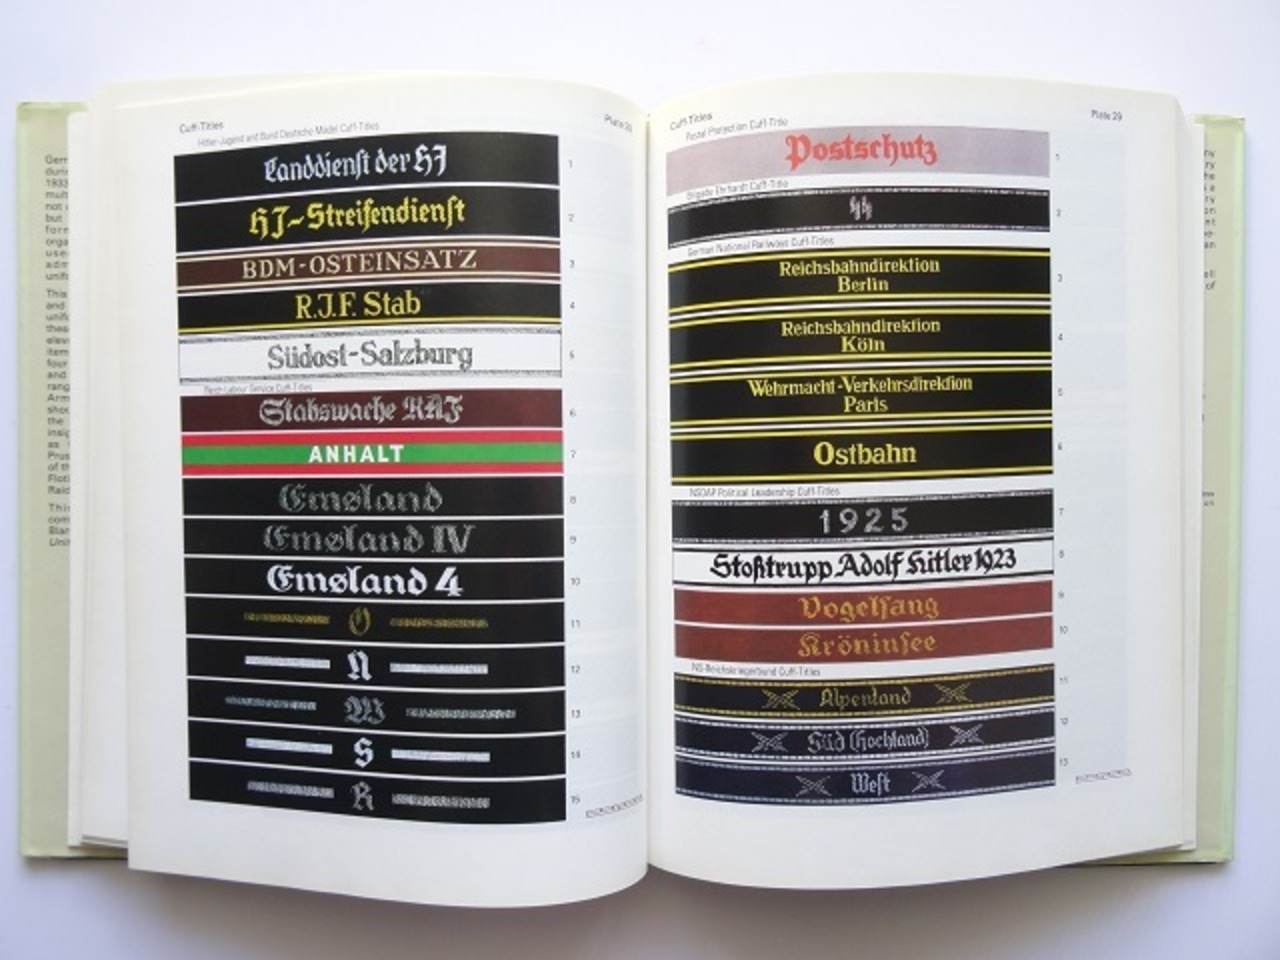 Cuff-Titles
Hitler-Jugend and Bund Deutsche Mädel Cuff-Titles
Landdienst der HJ
1
HJ-Streifendienst
2
BDM-OSTEINSATZ
3
R.J.F. Stab
4
Südost-Salzburg
5
Reich Labour Service Cuff-Titles
Stabswache RAF
6
ANHALT
7
Emsland
8
Emsland IV
9
Emsland 4
10
O
11
N
12
W
13
S
14
R
15
Cuff-Titles
Plate 29
Postal Protection Cuff-Title
Postschutz
1
Brigade Ehrhardt Cuff-Title
2
German National Railways Cuff-Titles
Reichsbahndirektion
Berlin
3
Reichsbahndirektion
Köln
4
Wehrmacht-Verkehrsdirektion
Paris
5
Ostbahn
6
NSDAP Political Leadership Cuff-Titles
1925
7
Stoßtrupp Adolf Hitler 1923
8
Vogelsang
9
Kröninsee
10
NS-Reichskriegerbund Cuff-Titles
Alpenland
11
Süd (Hochland)
12
West
13